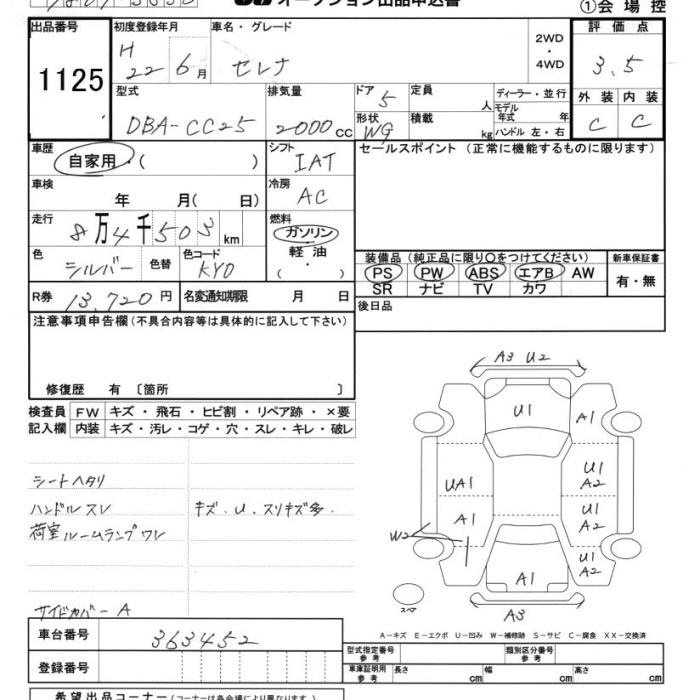 オークション出品申込書
①会場控
出品番号 初度登録年月 車名・グレード 評価点
1125 H 22 6月 セレナ 2WD・4WD 3.5
型式 排気量 ドア 5 定員 人 ディーラー・並行 外装 内装
DBA-CC25 2000cc 形状 WG 積載 kg モデル年式 年 ハンドル 左・右 C C
車歴 シフト セールスポイント (正常に機能するものに限ります)
自家用・( ) IAT
車検 冷房
年 月( 日) AC
走行 燃料
8万4千503km ガソリン・軽油
色 色替 色コード 装備品(純正品に限り〇をつけてください) 新車保証書
シルバー KY0 ・( ) PS PW ABS エアB AW 有・無
R券 13,720円 名変通知期限 月 日 SR ナビ TV カワ
後日品
注意事項申告欄(不具合内容等は具体的に記入して下さい)
修復歴 有 〔箇所 〕
検査員 FW キズ・飛石・ヒビ割・リペア跡・×要
記入欄 内装 キズ・汚レ・コゲ・穴・スレ・キレ・破レ
シートヘタリ
ハンドルスレ キズ、U、スリキズ多.
荷室ルームランプワレ
サイドカバー A
A3 U2
U1 A1
UA1 U1 A2
A1 U1 A2
W2
U1 A2
A1
スペア
A3
A－キズ E－エクボ U－凹み W－補修跡 S－サビ C－腐食 XX－交換済
車台番号 363452
登録番号
型式指定番号 参考 類別区分番号 参考
車庫証明用 参考 長さ cm 幅 cm 高さ cm
希望出品コーナー(コーナーは各会場により異なります)